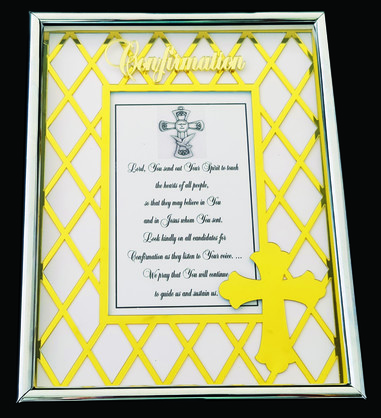 Confirmation
Lord, You send out Your Spirit to touch
the hearts of all people,
so that they may believe in You
and in Jesus whom You sent.
Look kindly on all candidates for
Confirmation as they listen to Your voice. ...
We pray that You will continue
to guide us and sustain us.